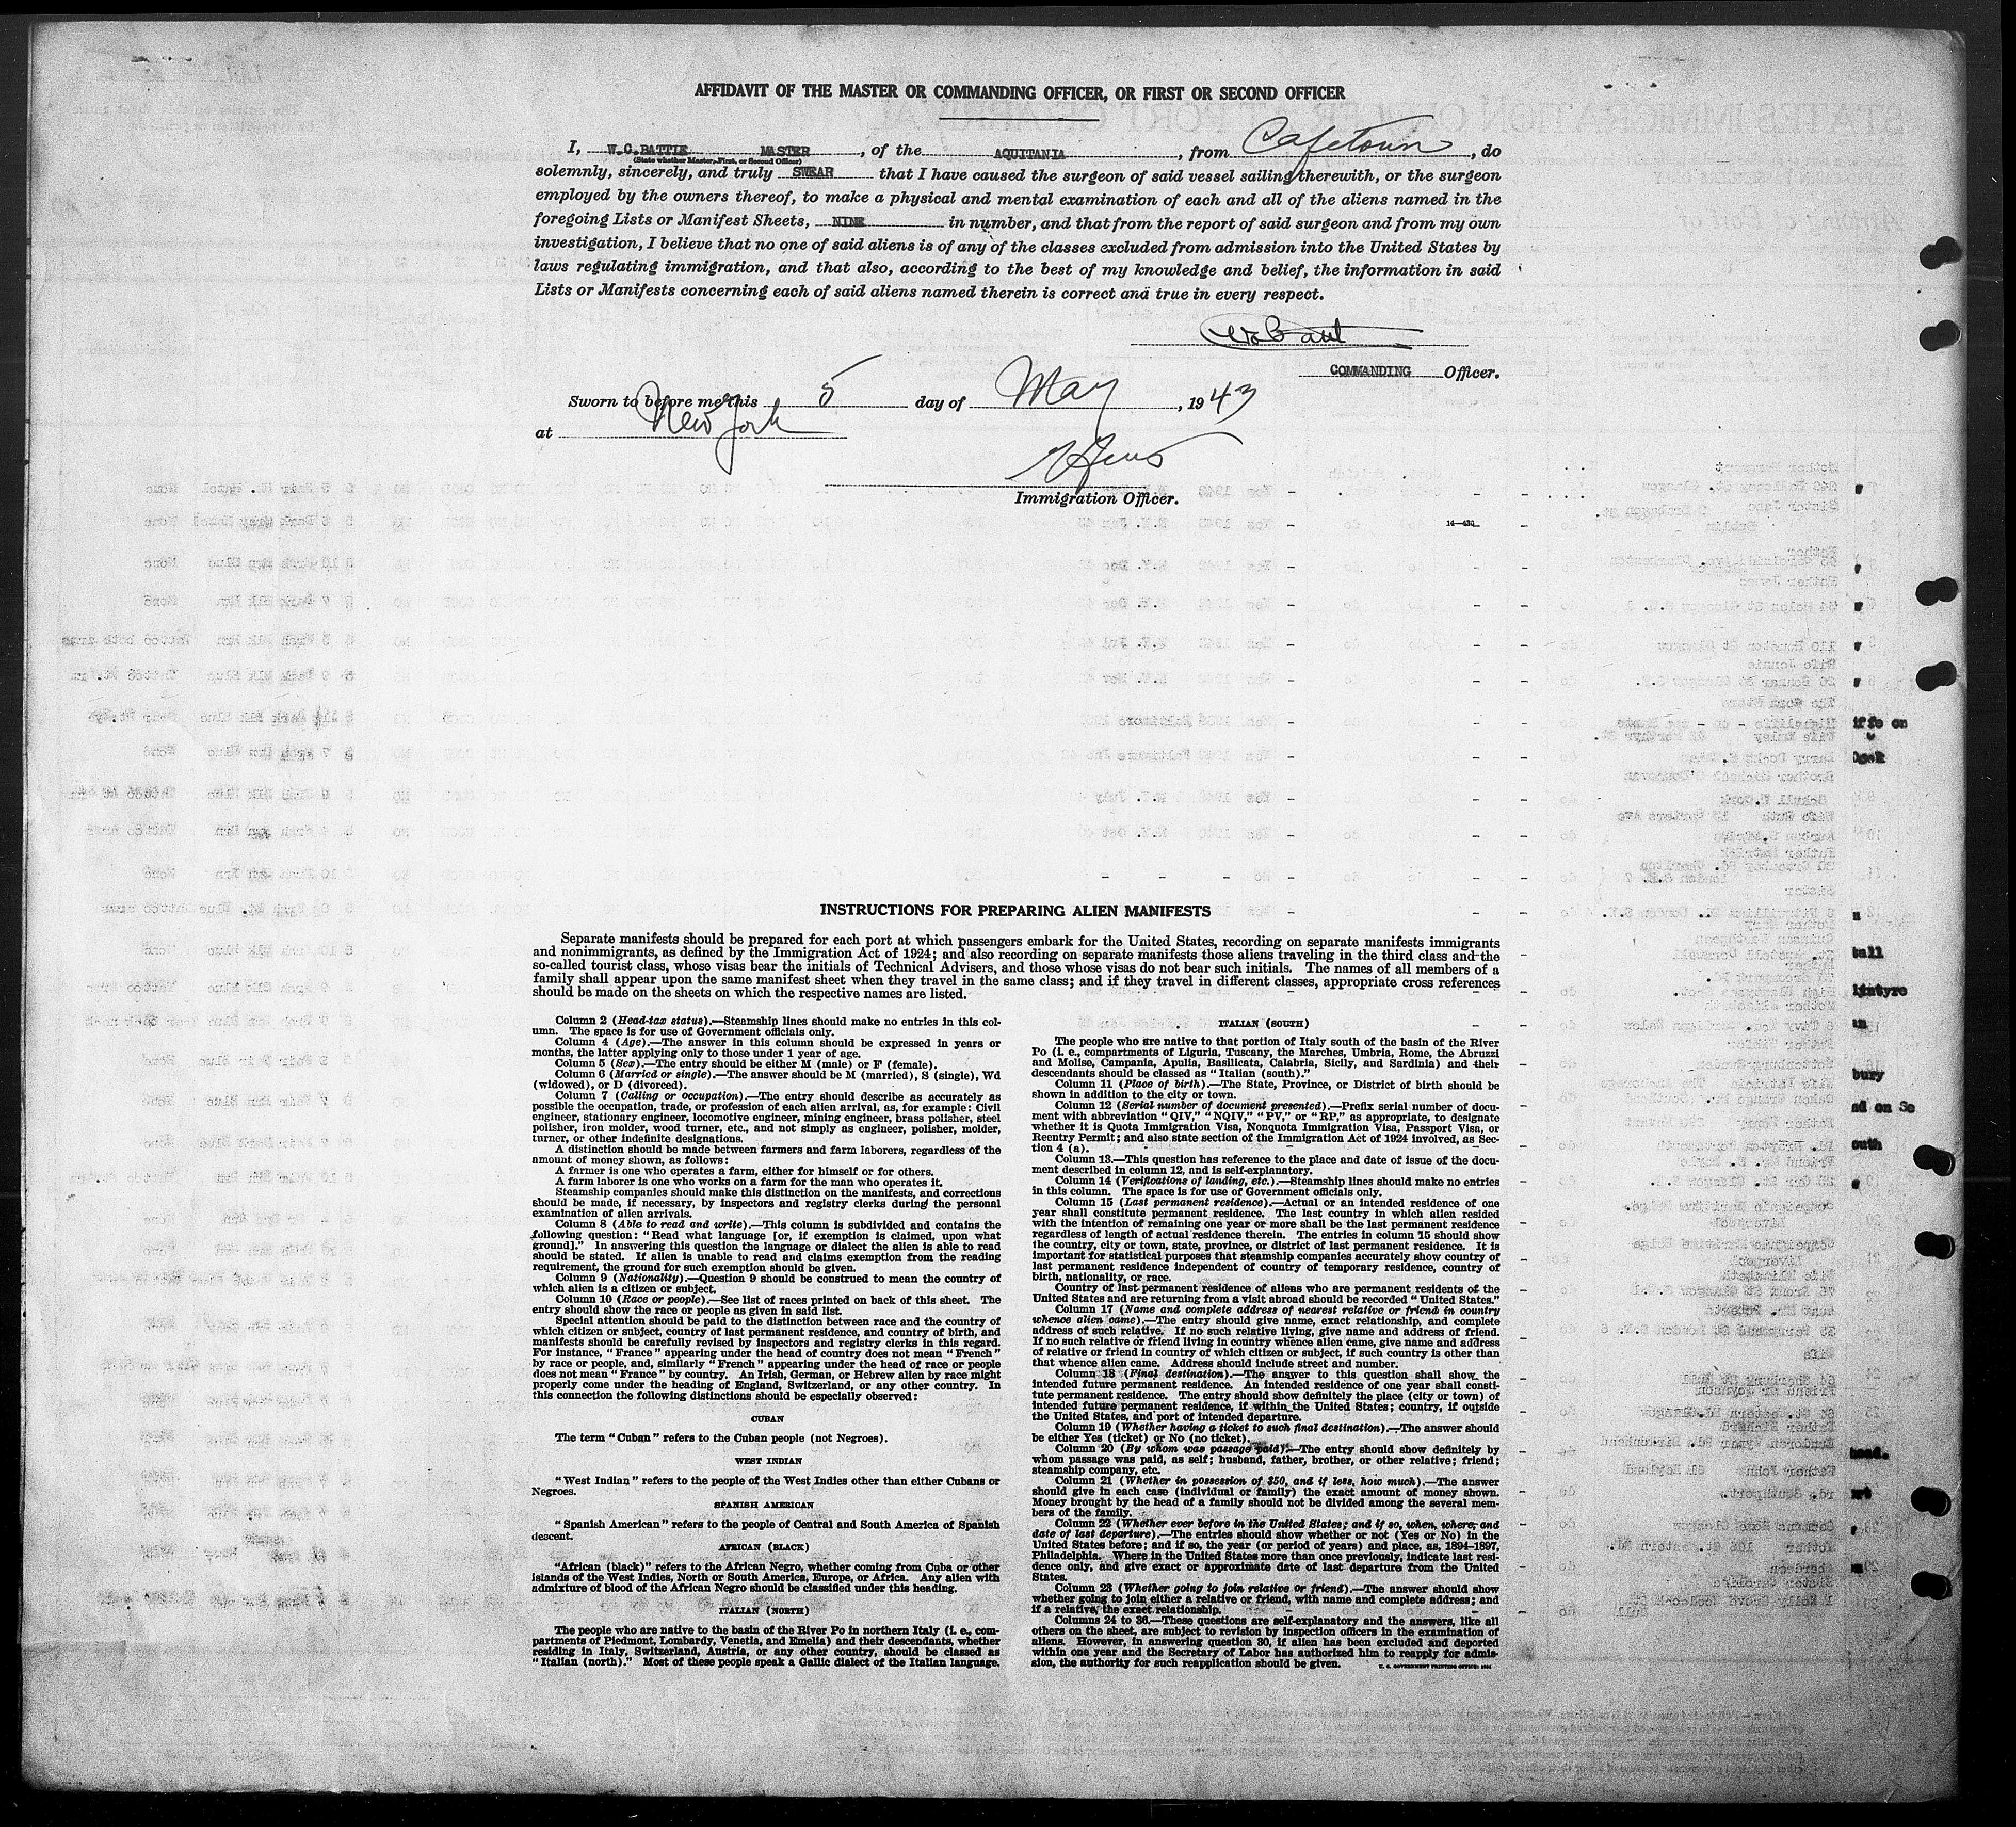 AFFIDAVIT OF THE MASTER OR COMMANDING OFFICER, OR FIRST OR SECOND OFFICER
I, W.C.BATTLE MASTER, of the AQUITANIA, from Capetown, do
(State whether Master, First, or Second Officer)
solemnly, sincerely, and truly SWEAR that I have caused the surgeon of said vessel sailing therewith, or the surgeon
employed by the owners thereof, to make a physical and mental examination of each and all of the aliens named in the
foregoing Lists or Manifest Sheets, NINE in number, and that from the report of said surgeon and from my own
investigation, I believe that no one of said aliens is of any of the classes excluded from admission into the United States by
laws regulating immigration, and that also, according to the best of my knowledge and belief, the information in said
Lists or Manifests concerning each of said aliens named therein is correct and true in every respect.
COMMANDING Officer.
Sworn to before me this 5 day of May, 1943
at New York
Immigration Officer.
14—430
INSTRUCTIONS FOR PREPARING ALIEN MANIFESTS
Separate manifests should be prepared for each port at which passengers embark for the United States, recording on separate manifests immigrants
and nonimmigrants, as defined by the Immigration Act of 1924; and also recording on separate manifests those aliens traveling in the third class and the
so-called tourist class, whose visas bear the initials of Technical Advisers, and those whose visas do not bear such initials. The names of all members of a
family shall appear upon the same manifest sheet when they travel in the same class; and if they travel in different classes, appropriate cross references
should be made on the sheets on which the respective names are listed.
Column 2 (Head-tax status).—Steamship lines should make no entries in this col-
umn. The space is for use of Government officials only.
Column 4 (Age).—The answer in this column should be expressed in years or
months, the latter applying only to those under 1 year of age.
Column 5 (Sex).—The entry should be either M (male) or F (female).
Column 6 (Married or single).—The answer should be M (married), S (single), Wd
(widowed), or D (divorced).
Column 7 (Calling or occupation).—The entry should describe as accurately as
possible the occupation, trade, or profession of each alien arrival, as, for example: Civil
engineer, stationary engineer, locomotive engineer, mining engineer, brass polisher, steel
polisher, iron molder, wood turner, etc., and not simply as engineer, polisher, molder,
turner, or other indefinite designations.
A distinction should be made between farmers and farm laborers, regardless of the
amount of money shown, as follows:
A farmer is one who operates a farm, either for himself or for others.
A farm laborer is one who works on a farm for the man who operates it.
Steamship companies should make this distinction on the manifests, and corrections
should be made, if necessary, by inspectors and registry clerks during the personal
examination of alien arrivals.
Column 8 (Able to read and write).—This column is subdivided and contains the
following question: "Read what language [or, if exemption is claimed, upon what
ground]." In answering this question the language or dialect the alien is able to read
should be stated. If alien is unable to read and claims exemption from the reading
requirement, the ground for such exemption should be given.
Column 9 (Nationality).—Question 9 should be construed to mean the country of
which alien is a citizen or subject.
Column 10 (Race or people).—See list of races printed on back of this sheet. The
entry should show the race or people as given in said list.
Special attention should be paid to the distinction between race and the country of
which citizen or subject, country of last permanent residence, and country of birth, and
manifests should be carefully revised by inspectors and registry clerks in this regard.
For instance, "France" appearing under the head of country does not mean "French"
by race or people, and, similarly "French" appearing under the head of race or people
does not mean "France" by country. An Irish, German, or Hebrew alien by race might
properly come under the heading of England, Switzerland, or any other country. In
this connection the following distinctions should be especially observed:
CUBAN
The term "Cuban" refers to the Cuban people (not Negroes).
WEST INDIAN
"West Indian" refers to the people of the West Indies other than either Cubans or
Negroes.
SPANISH AMERICAN
"Spanish American" refers to the people of Central and South America of Spanish
descent.
AFRICAN (BLACK)
"African (black)" refers to the African Negro, whether coming from Cuba or other
islands of the West Indies, North or South America, Europe, or Africa. Any alien with
admixture of blood of the African Negro should be classified under this heading.
ITALIAN (NORTH)
The people who are native to the basin of the River Po in northern Italy (i. e., com-
partments of Piedmont, Lombardy, Venetia, and Emelia) and their descendants, whether
residing in Italy, Switzerland, Austria, or any other country, should be classed as
"Italian (north)." Most of these people speak a Gallic dialect of the Italian language.
ITALIAN (SOUTH)
The people who are native to that portion of Italy south of the basin of the River
Po (i. e., compartments of Liguria, Tuscany, the Marches, Umbria, Rome, the Abruzzi
and Molise, Campania, Apulia, Basilicata, Calabria, Sicily, and Sardinia) and their
descendants should be classed as "Italian (south)."
Column 11 (Place of birth).—The State, Province, or District of birth should be
shown in addition to the city or town.
Column 12 (Serial number of document presented).—Prefix serial number of docu-
ment with abbreviation "QIV," "NQIV," "PV," or "RP," as appropriate, to designate
whether it is Quota Immigration Visa, Nonquota Immigration Visa, Passport Visa, or
Reentry Permit; and also state section of the Immigration Act of 1924 involved, as Sec-
tion 4 (a).
Column 13.—This question has reference to the place and date of issue of the docu-
ment described in column 12, and is self-explanatory.
Column 14 (Verifications of landing, etc.).—Steamship lines should make no entries
in this column. The space is for use of Government officials only.
Column 15 (Last permanent residence).—Actual or an intended residence of one
year shall constitute permanent residence. The last country in which alien resided
with the intention of remaining one year or more shall be the last permanent residence
regardless of length of actual residence therein. The entries in column 15 should show
the country, city or town, state, province, or district of last permanent residence. It is
important for statistical purposes that steamship companies accurately show country of
last permanent residence independent of country of temporary residence, country of
birth, nationality, or race.
Country of last permanent residence of aliens who are permanent residents of the
United States and are returning from a visit abroad should be recorded "United States."
Column 17 (Name and complete address of nearest relative or friend in country
whence alien came).—The entry should give name, exact relationship, and complete
address of such relative. If no such relative living, give name and address of friend.
If no such relative or friend living in country whence alien came, give name and address
of relative or friend in country of which citizen or subject, if such country is other than
that whence alien came. Address should include street and number.
Column 18 (Final destination).—The answer to this question shall show the
intended future permanent residence. An intended residence of one year shall consti-
tute permanent residence. The entry should show definitely the place (city or town) of
intended future permanent residence, if within the United States; country, if outside
the United States, and port of intended departure.
Column 19 (Whether having a ticket to such final destination).—The answer should
be either Yes (ticket) or No (no ticket).
Column 20 (By whom was passage paid).—The entry should show definitely by
whom passage was paid, as self; husband, father, brother, or other relative; friend;
steamship company, etc.
Column 21 (Whether in possession of $50, and if less, how much).—The answer
should give in each case (individual or family) the exact amount of money shown.
Money brought by the head of a family should not be divided among the several mem-
bers of the family.
Column 22 (Whether ever before in the United States; and if so, when, where, and
date of last departure).—The entries should show whether or not (Yes or No) in the
United States before; and if so, the year (or period of years) and place, as, 1894–1897,
Philadelphia. Where in the United States more than once previously, indicate last resi-
dence only, and give exact or approximate date of last departure from the United
States.
Column 23 (Whether going to join relative or friend).—The answer should show
whether going to join either a relative or friend, with name and complete address; and
if a relative, the exact relationship.
Columns 24 to 36.—These questions are self-explanatory and the answers, like all
others on the sheet, are subject to revision by inspection officers in the examination of
aliens. However, in answering question 30, if alien has been excluded and deported
within one year and the Secretary of Labor has authorized him to reapply for admis-
sion, the authority for such reapplication should be given.
U. S. GOVERNMENT PRINTING OFFICE: 1931